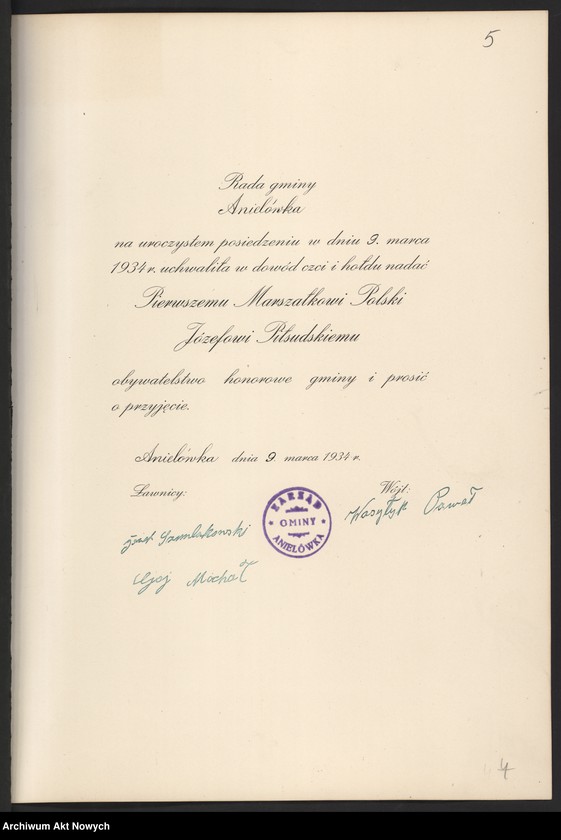 5
Rada gminy
Anielówka
na uroczystem posiedzeniu w dniu 9. marca
1934 r. uchwaliła w dowód czci i hołdu nadać
Pierwszemu Marszałkowi Polski
Józefowi Piłsudskiemu
obywatelstwo honorowe gminy i prosić
o przyjęcie.
Anielówka dnia 9. marca 1934 r.
Ławnicy:
Wójt:
ZARZĄD
GMINY
ANIELÓWKA
Wasyłyk Paweł
Józef
4
Archiwum Akt Nowych